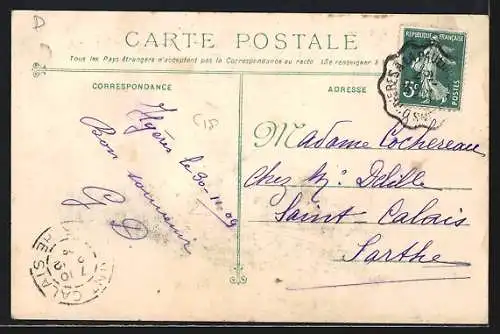 D
CARTE POSTALE
Tous les Pays étrangers n'acceptent pas la Correspondance au recto (Se renseigner à
CORRESPONDANCE
ADRESSE
REPUBLIQUE FRANÇAISE
5c
POSTES
C18
le 30-11-09
Bon souvenir
G D.
Madame Cochereau
Chez Mr. Delille
Saint Calais
Sarthe
CALAIS